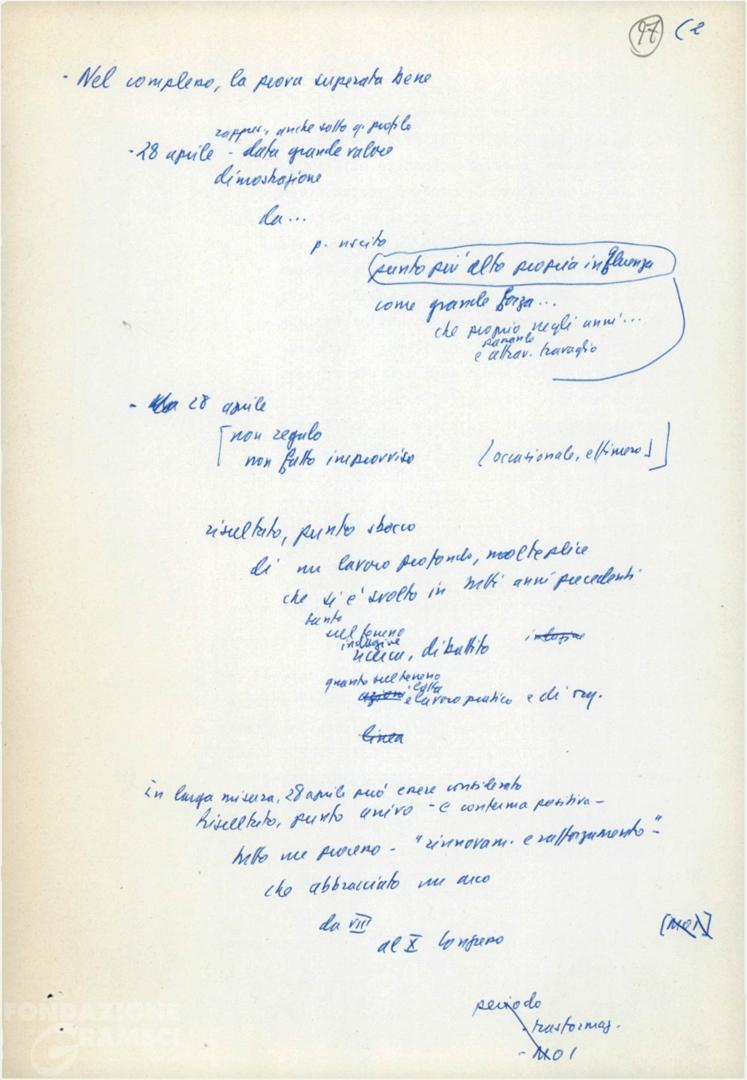 97 (2
- Nel complesso, la prova superata bene
rappres. anche sotto q. profilo
- 28 aprile - data grande valore
dimostrazione
da...
p. uscito
punto più alto propria influenza
come grande forza...
che proprio negli anni...
passando
e attrav. travaglio
- 28 aprile
[non regalo
non fatto improvviso [occasionale, effimero]]
risultato, punto sbocco
di un lavoro profondo, molteplice
che si è svolto in tutti anni precedenti
tanto
sul terreno
indagine
ricerca, dibattito indagine
quanto sul terreno
azioni lotta
e lavoro pratico e di org.
linea
In larga misura, 28 aprile può essere considerato
risultato, punto arrivo - e conferma positiva -
tutto un processo - "rinnovam. e rafforzamento" -
che abbracciato un arco
da VIII
al X Congresso [NOI]
periodo
- trasformaz.
- NOI
FONDAZIONE
GRAMSCI